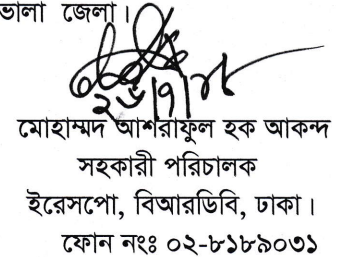 ভোলা জেলা।
২৬/৭/১৮
মোহাম্মদ আশরাফুল হক আকন্দ
সহকারী পরিচালক
ইরেসপো, বিআরডিবি, ঢাকা।
ফোন নংঃ ০২-৮১৮৯০৩১